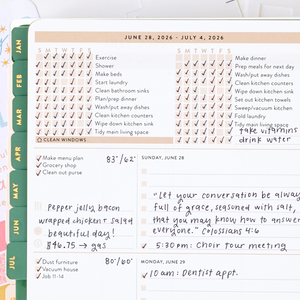 JUNE 28, 2026 - JULY 4, 2026
S M T W T F S
S M T W T F S
Exercise
Shower
Make beds
Start laundry
Clean bathroom sinks
Plan/prep dinner
Wash/put away dishes
Clean kitchen counters
Wipe down kitchen sink
Tidy main living space
CLEAN WINDOWS
Make dinner
Prep meals for next day
Wash/put away dishes
Clean kitchen counters
Wipe down kitchen sink
Set out kitchen towels
Sweep/vacuum kitchen
Fold laundry
Tidy main living space
take vitamins
drink water
JAN
FEB
MAR
APR
MAY
JUN
JUL
Make menu plan
Grocery shop
Clean out purse
83°/62°
Pepper jelly bacon
wrapped chicken + salad
beautiful day!
$46.75 → gas
SUNDAY, JUNE 28
"Let your conversation be always
full of grace, seasoned with salt,
that you may know how to answer
everyone." Colossians 4:6
5:30pm: Choir tour meeting
Dust furniture
Vacuum house
Job 11-14
80°/60°
MONDAY, JUNE 29
10am: Dentist appt.